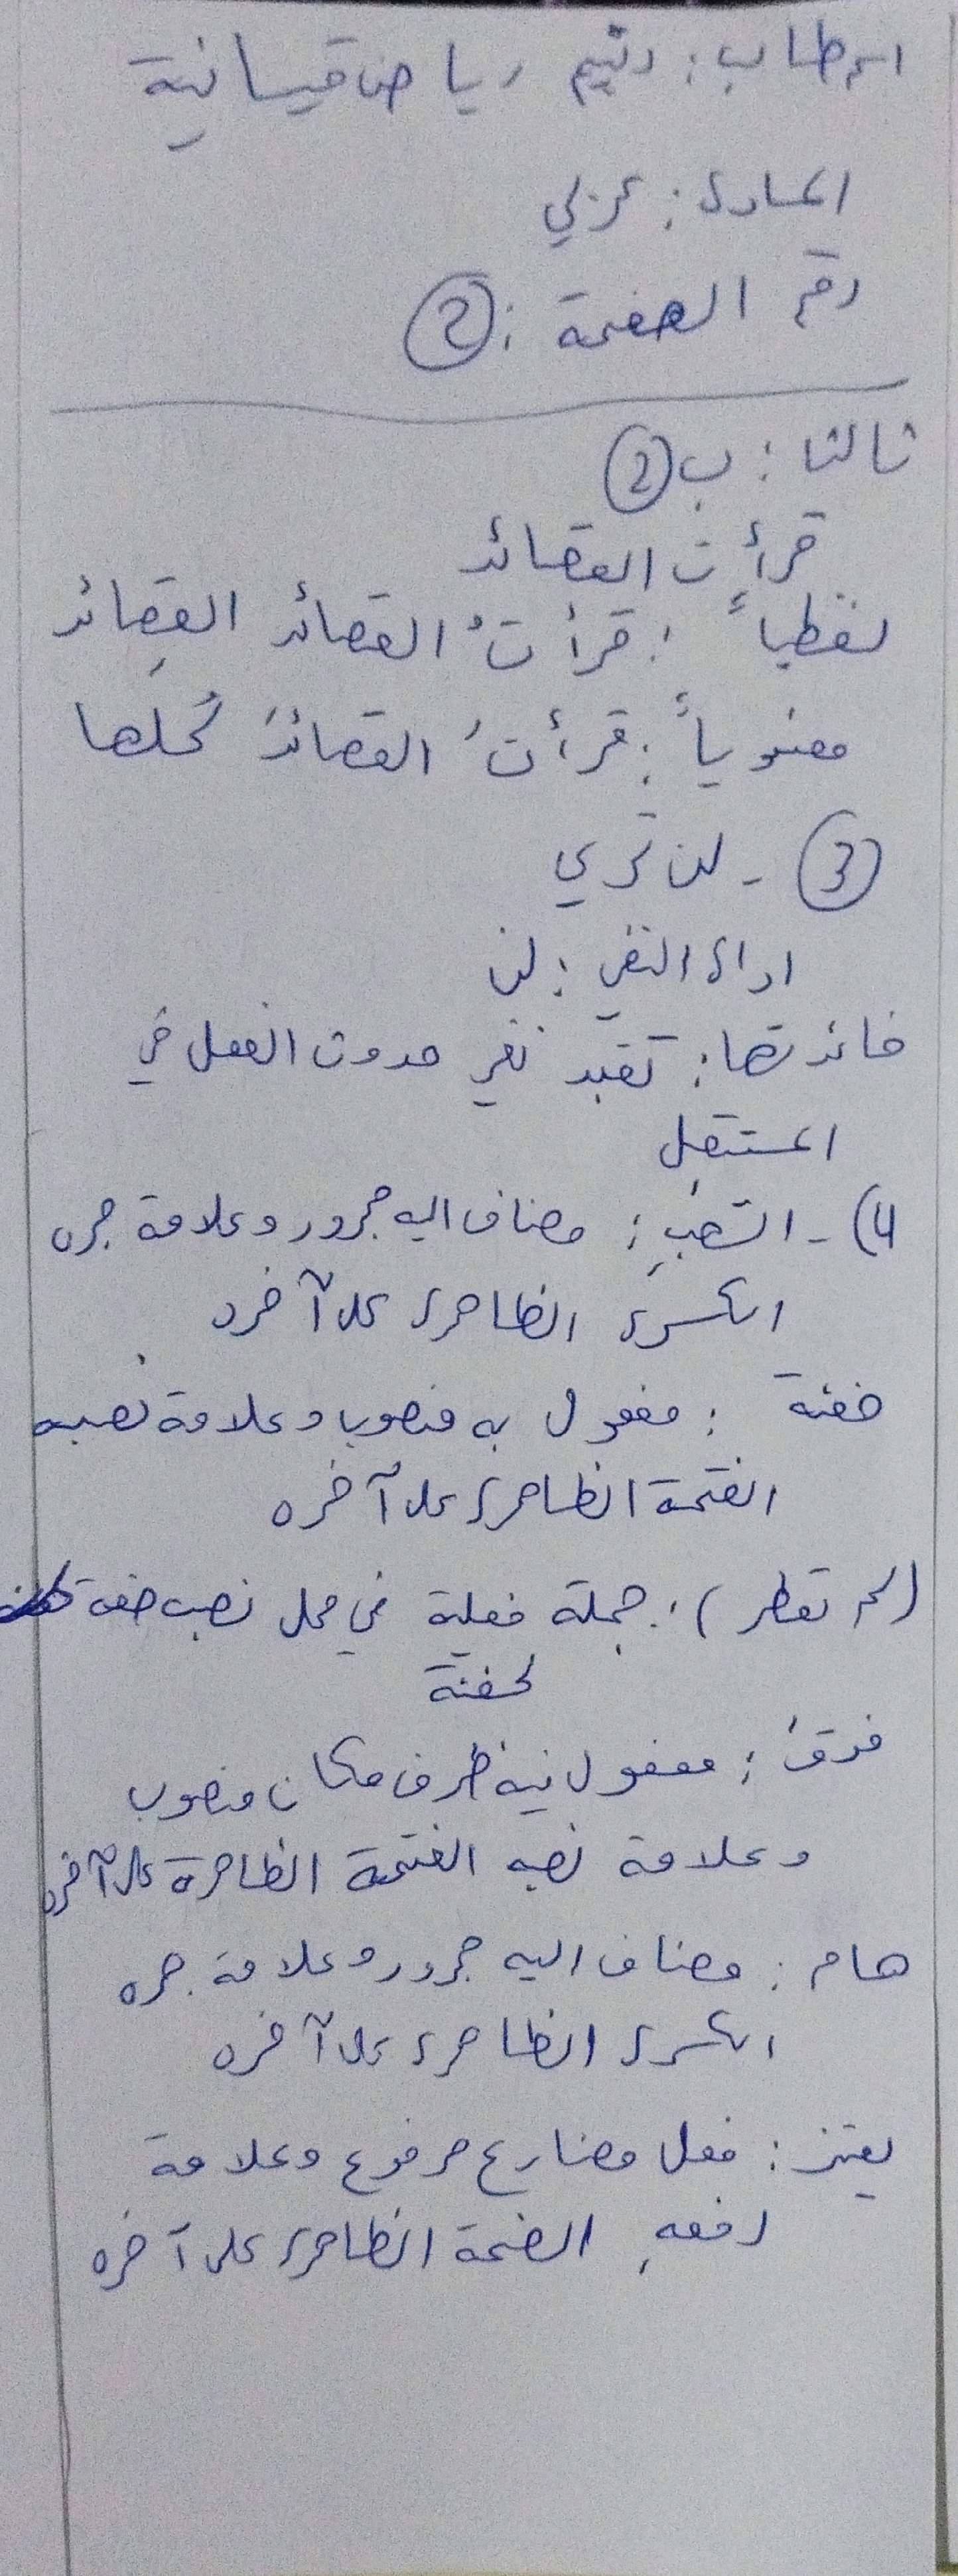 اسم طالب: رنيم رياض قيسانية
المادة: عربي
رقم الصفحة: 2
ثالثا: ب 2
قرأت القصائد
لفظياً: قرأتُ القصائد القصائد
معنوياً: قرأتُ القصائدَ كُلها
3 - لن تري
اداة النفي: لن
فائدتها: تفيد نفي حدوث الفعل في
المستقبل
4) - الشعبِ: مضاف اليه مجرور وعلامة جره
الكسرة الظاهرة على آخره
حفنة: مفعول به منصوب وعلامة نصبه
الفتحة الظاهرة على آخره
(لم تفطر): جملة فعلية في محل نصب صفة
لحفنة
فوقَ: مفعول فيه ظرف مكان منصوب
وعلامة نصبه الفتحة الظاهرة على آخره
هام: مضاف اليه مجرور وعلامة جره
الكسرة الظاهرة على آخره
يعتز: فعل مضارع مرفوع وعلامة
رفعهِ الضمة الظاهرة على آخره